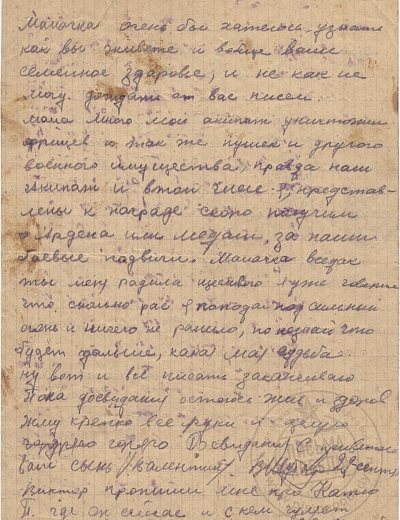 Мамачка очень бы хателось узнати
как вы живете и вобще ваше
семейное здаровье, и не как не
могу дождати от вас писем.
мама много мой акипаж уничтожил
фрицев и так же пушек и другого
военного имущества, правда наш
Акипаж и втом числе я, представ-
лены к награде скоро получим
Ардена или медали, за наши
боевые подвиги. Мамачка всеравно
ты меня радила щасливого я уже говорю
что сколько рас я попадал под сильный
огонь и ничего не ранело, но незнаю что
будет дальше, какая мая судьба.
ну вот и всё писать заканчиваю
Пока досвидания остаюсь жив и здоров
Жму крепко все руки и целую
горячо Досвидания с приветом
ваш сынь /Валентин/. 22 сентя
Виктор пропиши мне про Катю
П. где он сейчас и с кем гуляет